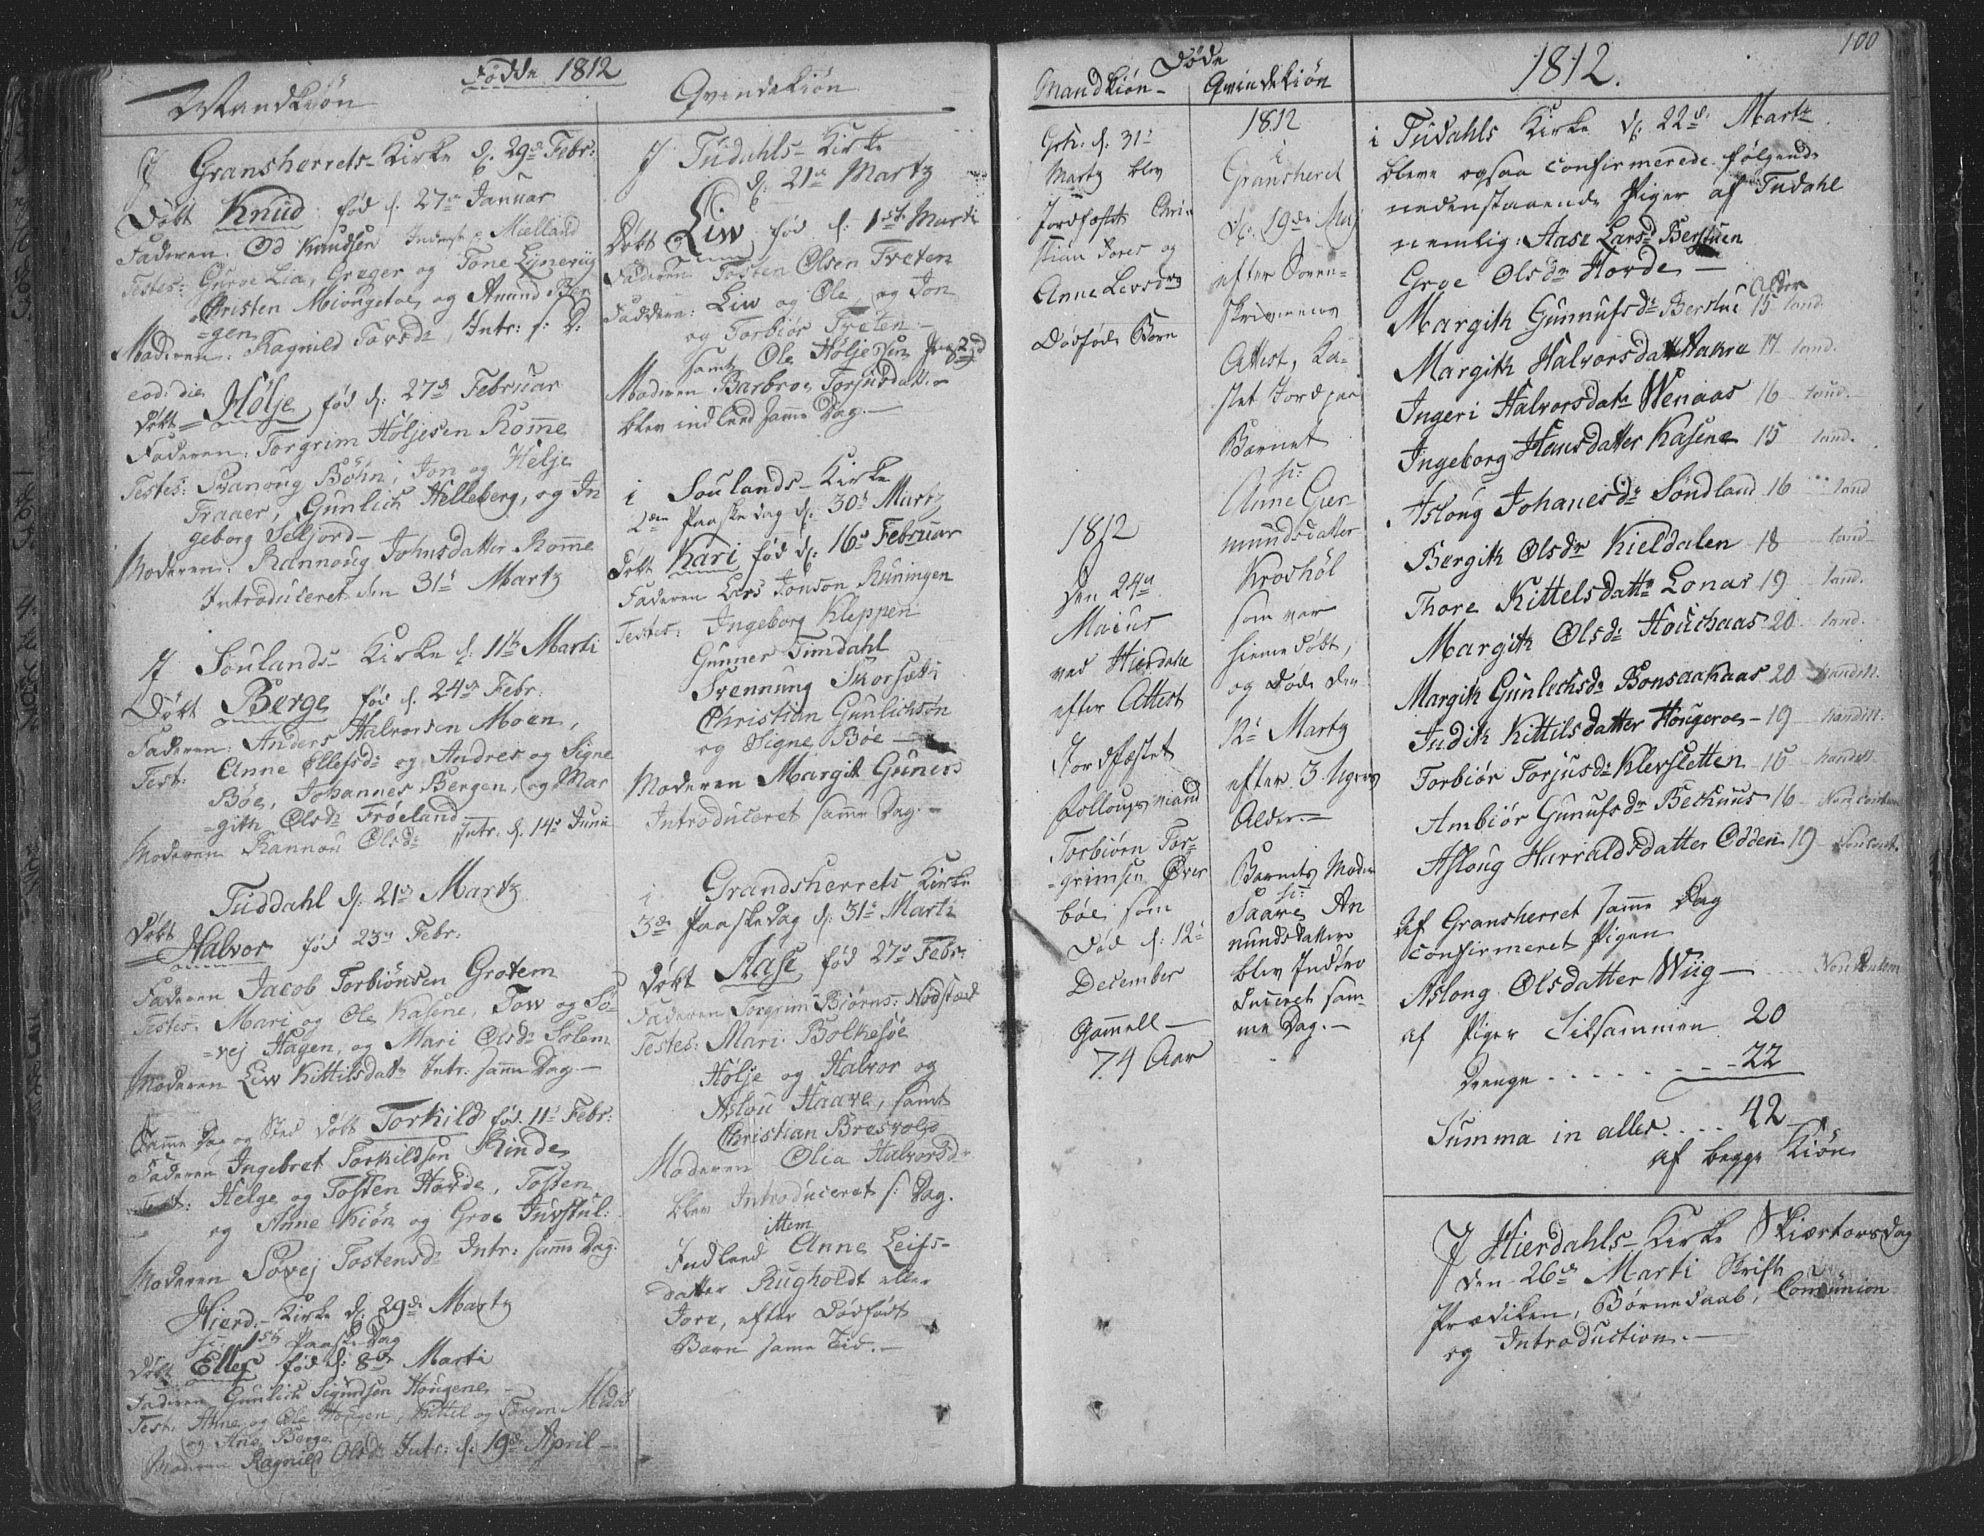 Fødde 1812
Mandkiøn
I Gransherrets Kirke d. 29de Febr:
Døbt Knud fød d. 27de Januar
Faderen: Od Knudsen Mælland
Testes: Guroe Lia, Greger og Tone Lÿnerug
Christen Miøngetoe og Anund Ber
=gen
Moderen: Ragnild Tovsdr, Intr: s: D:
eod: die
Døbt Hølje fød d: 27de Februar
Faderen: Torgrim Høljesen Romme
Testes: Svanoug Böhn, Jon og Helje
Traaer, Gunlich Helleberg, og In
geborg Seljord
Moderen: Rannoug Johnsdatter Romme
Introduceret den 31te Martz
I Soulands Kirke d: 11te Marti
Døbt Berge fød d. 24de Febr:
Faderen: Anders Halvorsen Moen,
Test: Anne Ellefsdr og Andres og Signe
Bøe, Johannes Bergen, og Mar
=gith Olsdr Frøeland
Moderen Rannou Olsdr Intr: d. 14de Junii
Tuddahl d. 21de Martz
Døbt Halvor fød 23de Febr:
Faderen Jacob Torbiönsen Grotem
Testes: Mari og Ole Kasene, Tow og So
=vej Hagen, og Mari Olsdr Solem
Moderen Liw Kittilsdatr Intr: samme Dag
Samme Dag og Sted døbt Torkild fød 11te Febr:
Faderen Ingebret Torkildsen Rinde
Test: Helge og Tosten Hovde, Tosten
og Anne Kiøn og Groe Juvstul:
Moderen Sovej Tostensdr Intr: samme Dag:
Hierd: Kirke d. 29de Martz
1ste Paaske Dag
Døbt Ellef fød d: 8de Marti
Faderen Gunlich Sigurdsen Hougene
Test. Anne og Ole Hougen, Kittil og Jørgen
og Berge
Moderen Ragnild Olsdr Intr: d. 19de April
Qvindekiøn
I Tudahls Kirke
d: 21de Martz
Døbt Liw fød d: 1ste Marti
Faderen Tosten Olsen Treten
Faddere: Liw og Ole, og Jon
og Torbiør Treten
samt Ole Høljessen
Moderen Barbroe Torjusdatter
blev indleed samme Dag.
i Soulands Kirke
2den Paaskedag d: 30te Martz
Døbt Kari fød d: 16de Februar
Faderen Lars Jonson Rüningen
Testes: Ingeborg Kleppen
Gunner Tundahl
Svennung Skorsett
Christian Gunlichson
og Signe Bøe
Moderen Margit Guners
Introduceret samme Dag.
i Grandsherrets Kirke
3de Paaskedag d: 31te Marti
Døbt Aase fød 27de Febr:
Faderen Torgrim Biørns: Nodstad
Testes: Mari Bolkesøe
Hølje og Halvor og
Aslou Haave, samt
Christian Bresvold
Moderen Olia Halvorsdr
blev Introduceret s: Dag.
ittem
Indleed Anne Leifs
datter Rugholdt eller
Jore, efter Dødfødt
Barn samme Tid.
Døde
Mandkiøn
Grh. d. 31te
Martz blev
Jordfæstet Chri
stian Jores og
Anne Levsdrs
Dødfødt Barn
1812
Den 24de
Maius
ved Hierdale
efter Attest
Jordfæstet
Follougsmand
Torbiørn Tor=
=grimsen Over
bøe, som
død d: 12te
December
Gammell
74 Aar
Qvindekiøn
1812
i
Gransheret
d. 19de Maj
efter Soren-
skriverens
Attest, Ka-
stet Jord paa
Barnet
Anne Gier
mundsdatter
Kroshøl
som var
hiemedøbt,
og døde den
12te Martz
efter 3 Ugers
Alder.
Barnets Moder
Saave An
nundsdatter
blev Intro
duceret sam-
me Dag.
100
1812.
i Tudahls Kirke d. 22de Martz
bleve ogsaa confirmerede følgende
nedenstaaende Piger af Tudahl
nemlig: Aase Larsdr Berstuen
Groe Olsdr Hovde
Alder
Margith Gunnufsdr Berstue 15 laud.
Margith Halvorsdatt Aakre 17 laud.
Ingeri Halvorsdatr Wenaas 16 laud.
Ingeborg Hansdatter Kasene 15 laud.
Aslong Johanesdr Söndland 16 laud
Bergith Olsdr Kieldalen 18 laud
Thore Kittelsdatt Lonar 19 laud.
Margith Olsdr Houchaas 20 laud.
Margith Gunlechsdr Bonsaakaas 20 haudill.
Judith Kittilsdatter Hougeroe 19 haudill.
Torbiør Torjusdr Klevsletten 16 haudill.
Ambiør Gunufsdr Bechuus 16 Non contem
Aslong Harraldsdatter Odden 19 Noncont.
Af Gransherret samme Dag
confirmeret Pigen
Aslong Olsdatter Wiig Non Contem
af Piger tilsammen 20
Drenge 22
Summa in alles 42
af begge Kiøn
I Hierdahls Kirke Skiærtorsdag
den 26de Marti Skrifte
Prædiken, Børnedaab, Comunion
og Introduction.